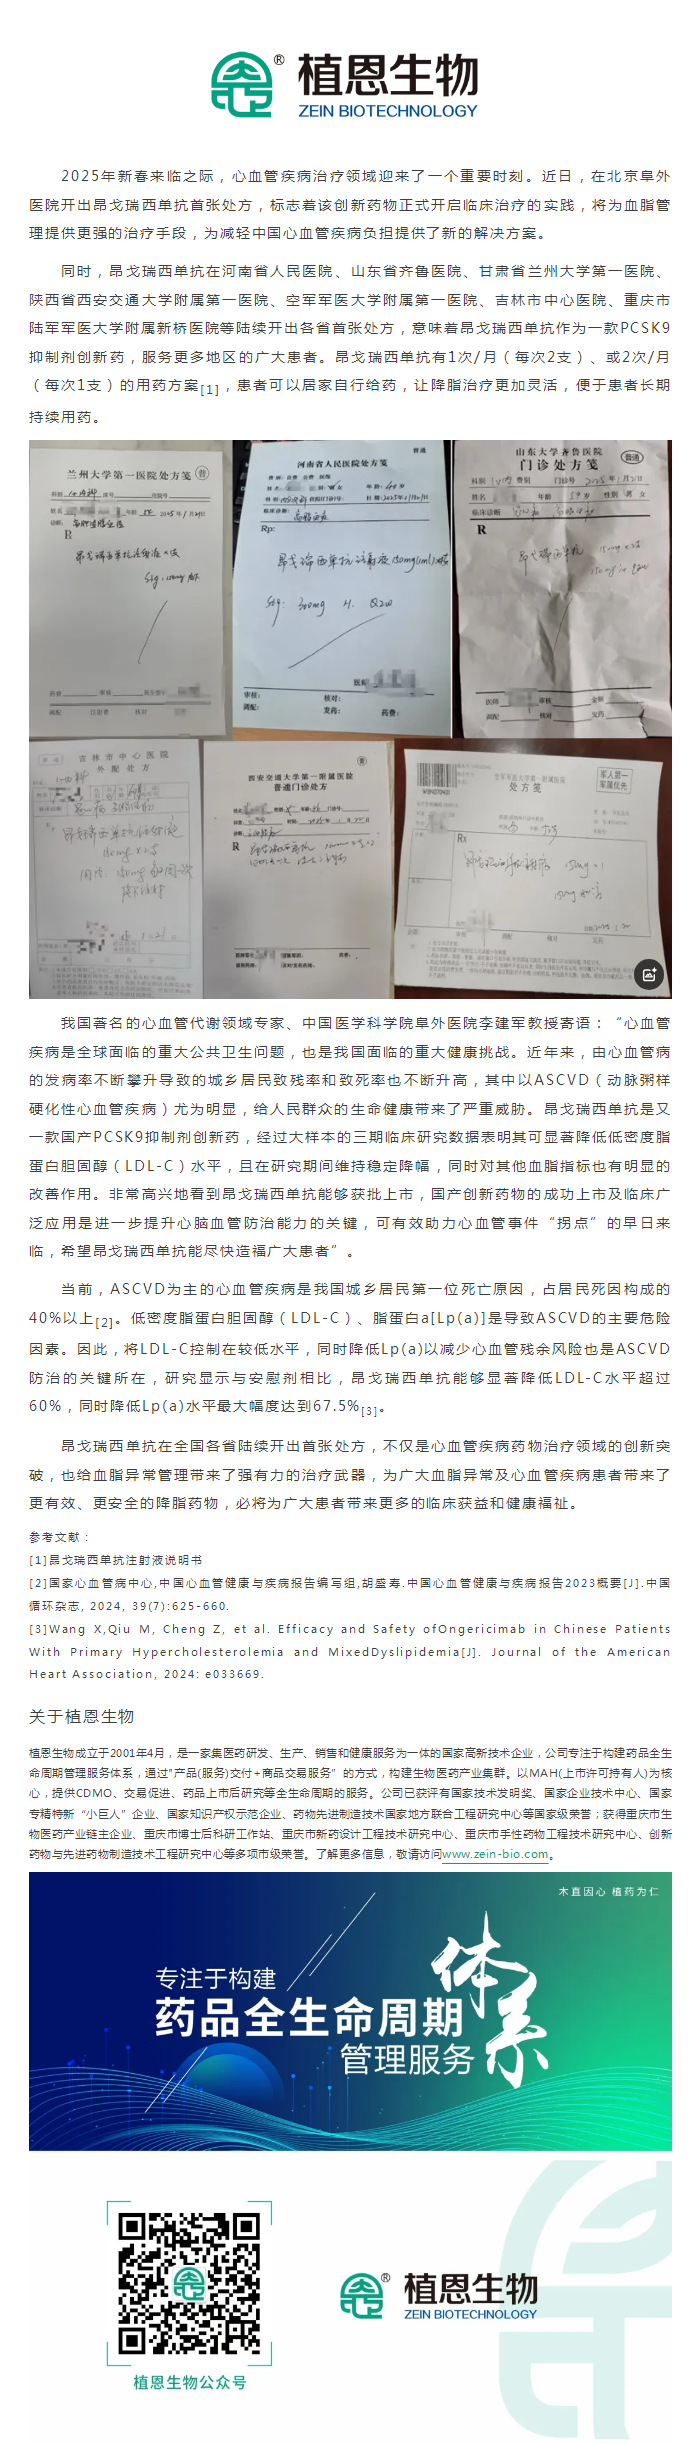 植恩生物
ZEIN BIOTECHNOLOGY
2025年新春来临之际，心血管疾病治疗领域迎来了一个重要时刻。近日，在北京阜外
医院开出昂戈瑞西单抗首张处方，标志着该创新药物正式开启临床治疗的实践，将为血脂管
理提供更强的治疗手段，为减轻中国心血管疾病负担提供了新的解决方案。
同时，昂戈瑞西单抗在河南省人民医院、山东省齐鲁医院、甘肃省兰州大学第一医院、
陕西省西安交通大学附属第一医院、空军军医大学附属第一医院、吉林市中心医院、重庆市
陆军军医大学附属新桥医院等陆续开出各省首张处方，意味着昂戈瑞西单抗作为一款PCSK9
抑制剂创新药，服务更多地区的广大患者。昂戈瑞西单抗有1次/月（每次2支）、或2次/月
（每次1支）的用药方案[1]，患者可以居家自行给药，让降脂治疗更加灵活，便于患者长期
持续用药。
兰州大学第一医院处方笺
普
河南省人民医院处方笺
普通
Rp:
昂戈瑞西单抗注射液150mg(1ml)
Sig: 300mg H. Q2W
审核：
核对：
调配：
发药：
药费：
山东大学齐鲁医院
门诊处方笺
普通
R
昂戈瑞西单抗
吉林市中心医院
外配处方
西安交通大学第一附属医院
普通门诊处方
R
空军军医大学第一附属医院
处方笺
军人第一
军属优先
Rx
我国著名的心血管代谢领域专家、中国医学科学院阜外医院李建军教授寄语：“心血管
疾病是全球面临的重大公共卫生问题，也是我国面临的重大健康挑战。近年来，由心血管病
的发病率不断攀升导致的城乡居民致残率和致死率也不断升高，其中以ASCVD（动脉粥样
硬化性心血管疾病）尤为明显，给人民群众的生命健康带来了严重威胁。昂戈瑞西单抗是又
一款国产PCSK9抑制剂创新药，经过大样本的三期临床研究数据表明其可显著降低低密度脂
蛋白胆固醇（LDL-C）水平，且在研究期间维持稳定降幅，同时对其他血脂指标也有明显的
改善作用。非常高兴地看到昂戈瑞西单抗能够获批上市，国产创新药物的成功上市及临床广
泛应用是进一步提升心脑血管防治能力的关键，可有效助力心血管事件“拐点”的早日来
临，希望昂戈瑞西单抗能尽快造福广大患者”。
当前，ASCVD为主的心血管疾病是我国城乡居民第一位死亡原因，占居民死因构成的
40%以上[2]。低密度脂蛋白胆固醇（LDL-C）、脂蛋白a[Lp(a)]是导致ASCVD的主要危险
因素。因此，将LDL-C控制在较低水平，同时降低Lp(a)以减少心血管残余风险也是ASCVD
防治的关键所在，研究显示与安慰剂相比，昂戈瑞西单抗能够显著降低LDL-C水平超过
60%，同时降低Lp(a)水平最大幅度达到67.5%[3]。
昂戈瑞西单抗在全国各省陆续开出首张处方，不仅是心血管疾病药物治疗领域的创新突
破，也给血脂异常管理带来了强有力的治疗武器，为广大血脂异常及心血管疾病患者带来了
更有效、更安全的降脂药物，必将为广大患者带来更多的临床获益和健康福祉。
参考文献：
[1]昂戈瑞西单抗注射液说明书
[2]国家心血管病中心,中国心血管健康与疾病报告编写组,胡盛寿.中国心血管健康与疾病报告2023概要[J].中国
循环杂志, 2024, 39(7):625-660.
[3]Wang X,Qiu M, Cheng Z, et al. Efficacy and Safety ofOngericimab in Chinese Patients
With Primary Hypercholesterolemia and MixedDyslipidemia[J]. Journal of the American
Heart Association, 2024: e033669.
关于植恩生物
植恩生物成立于2001年4月，是一家集医药研发、生产、销售和健康服务为一体的国家高新技术企业，公司专注于构建药品全生
命周期管理服务体系，通过"产品(服务)交付+商品交易服务”的方式，构建生物医药产业集群。以MAH(上市许可持有人)为核
心，提供CDMO、交易促进、药品上市后研究等全生命周期的服务。公司已获评有国家技术发明奖、国家企业技术中心、国家
专精特新“小巨人”企业、国家知识产权示范企业、药物先进制造技术国家地方联合工程研究中心等国家级荣誉；获得重庆市生
物医药产业链主企业、重庆市博士后科研工作站、重庆市新药设计工程技术研究中心、重庆市手性药物工程技术研究中心、创新
药物与先进药物制造技术工程研究中心等多项市级荣誉。了解更多信息，敬请访问www.zein-bio.com。
木直因心 植药为仁
专注于构建
药品全生命周期
管理服务
体系
植恩生物公众号
植恩生物
ZEIN BIOTECHNOLOGY